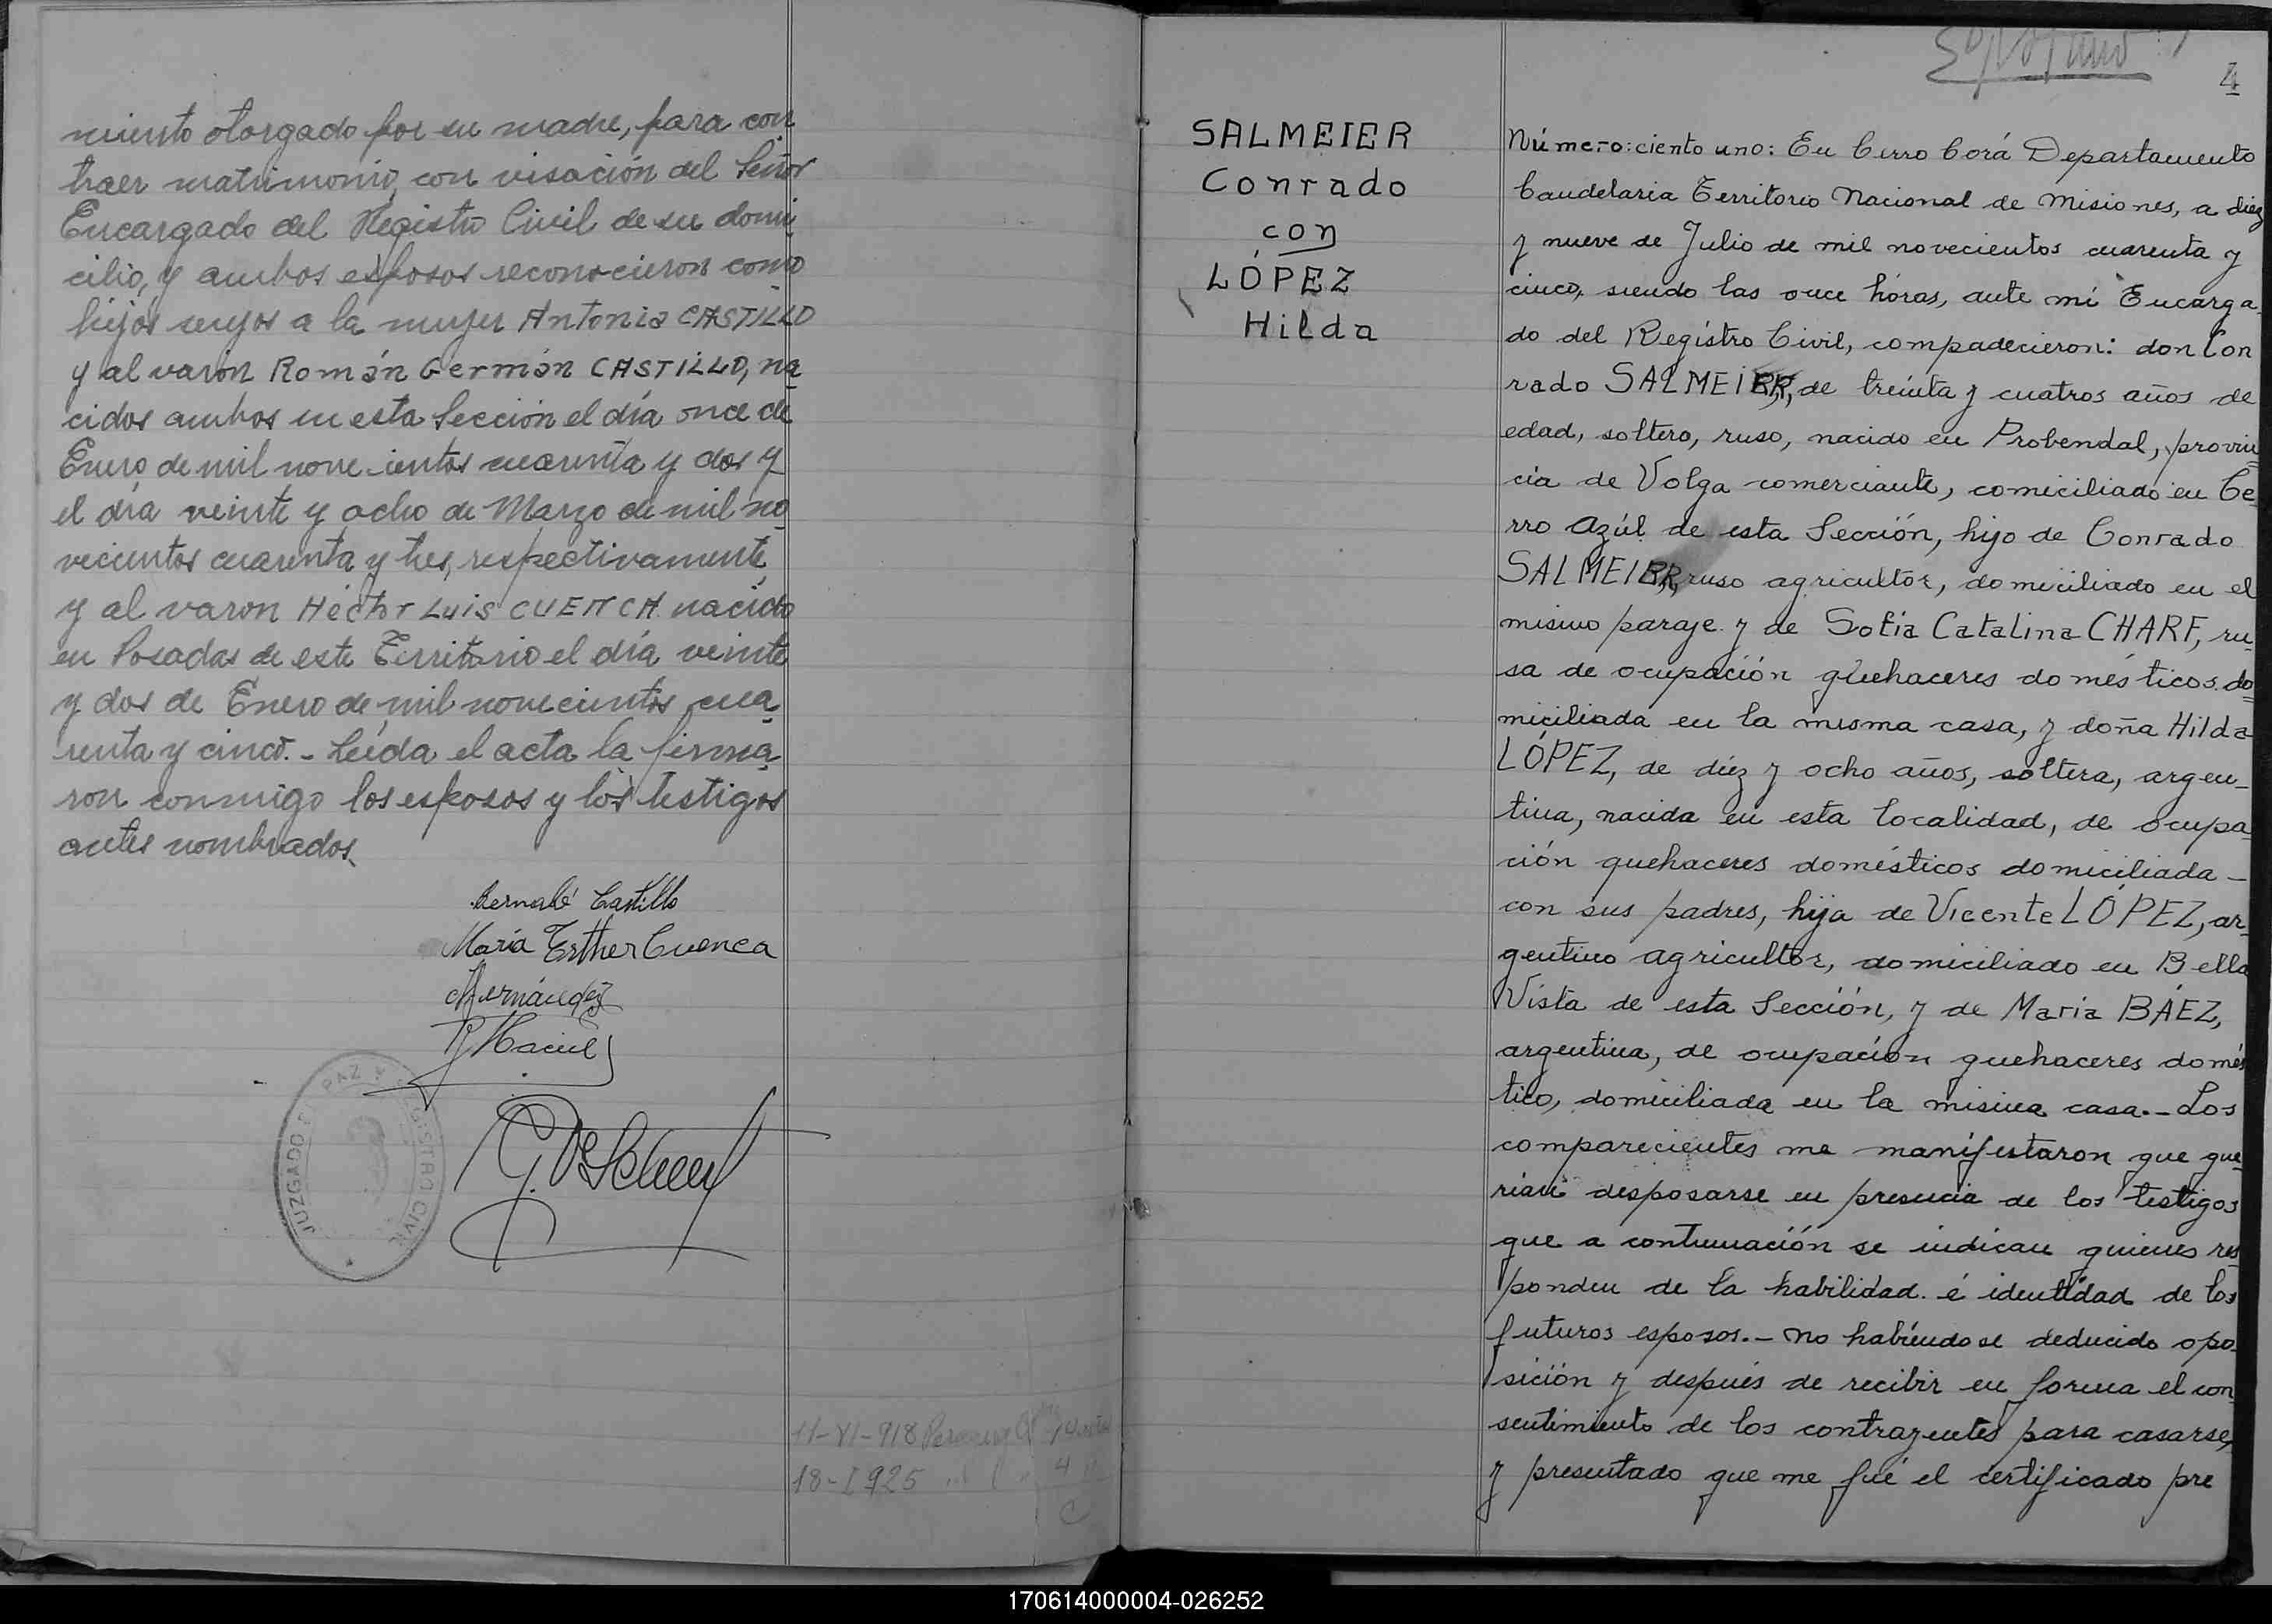 miento otorgado por su madre, para con
traer matrimonio, con visación del Señor
Encargado del Registro Civil de su domi
cilio, y ambos esposos reconocieron como
hijos suyos a la mujer Antonia CASTILLO
y al varón Román Germán CASTILLO, na
cidos ambos en esta Sección el día once de
Enero de mil novecientos cuarenta y dos y
el día veinte y ocho de Marzo de mil no
vecientos cuarenta y tres, respectivamente,
y al varon Héctor Luis CUENCA nacido
en Posadas de este Territorio el día veinte
y dos de Enero de mil novecientos cua
renta y cinco.- Leída el acta la firma
ron conmigo los esposos y los testigos
antes nombrados.
Bernabé Castillo
María Esther Cuenca
Hernández
JUZGADO DE PAZ Y REGISTRO CIVIL
11-VI-918
18-I 925
4
SALMEIER
Conrado
con
LÓPEZ
Hilda
4
Número: ciento uno: En Cerro Corá Departamento
Candelaria Territorio Nacional de Misiones, a diez
y nueve de Julio de mil novecientos cuarenta y
cinco, siendo las once hóras, ante mí Encarga
do del Regístro Civil, compadecieron: don Con
rado SALMEIER, de treínta y cuatros años de
edad, soltero, ruso, nacido en Probendal, provin
cia de Volga comerciante, comiciliado en Ce
rro Azúl de esta Sección, hijo de Conrado
SALMEIER, ruso agricultor, domiciliado en el
mismo paraje y de Sofía Catalina CHARF, ru
sa de ocupación quehaceres domésticos do
miciliada en la misma casa, y doña Hilda
LÓPEZ, de diéz y ocho años, soltera, argen_
tina, nacida en esta localidad, de ocupa
ción quehaceres domésticos domiciliada -
con sus padres, hija de Vicente LÓPEZ, ar_
gentino agricultor, domiciliado en Bella
Vista de esta Sección, y de María BÁEZ,
argentina, de ocupación quehaceres domés
tico, domiciliada en la misma casa.- Los
comparecientes me manifestaron que que
rían desposarse en presencia de los testigos
que a continuación se indican quienes res
ponden de la habilidad é identidad de los
futuros esposos.- No habiendose deducido opo
sición y después de recibir en forma el con
sentimiento de los contrayentes para casarse,
y presentado que me fué el certificado pre
170614000004-026252